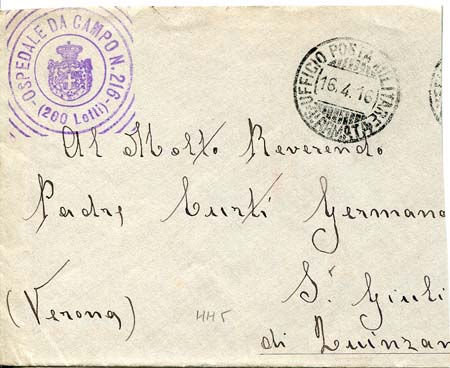 OSPEDALE DA CAMPO N. 216
(200 Letti)
UFFICIO POSTA MILITARE
16.4.16
ARMATA
Al Molto Reverendo
Padre Curti Germano
S. Giuli
(Verona)
445
di Quinzan